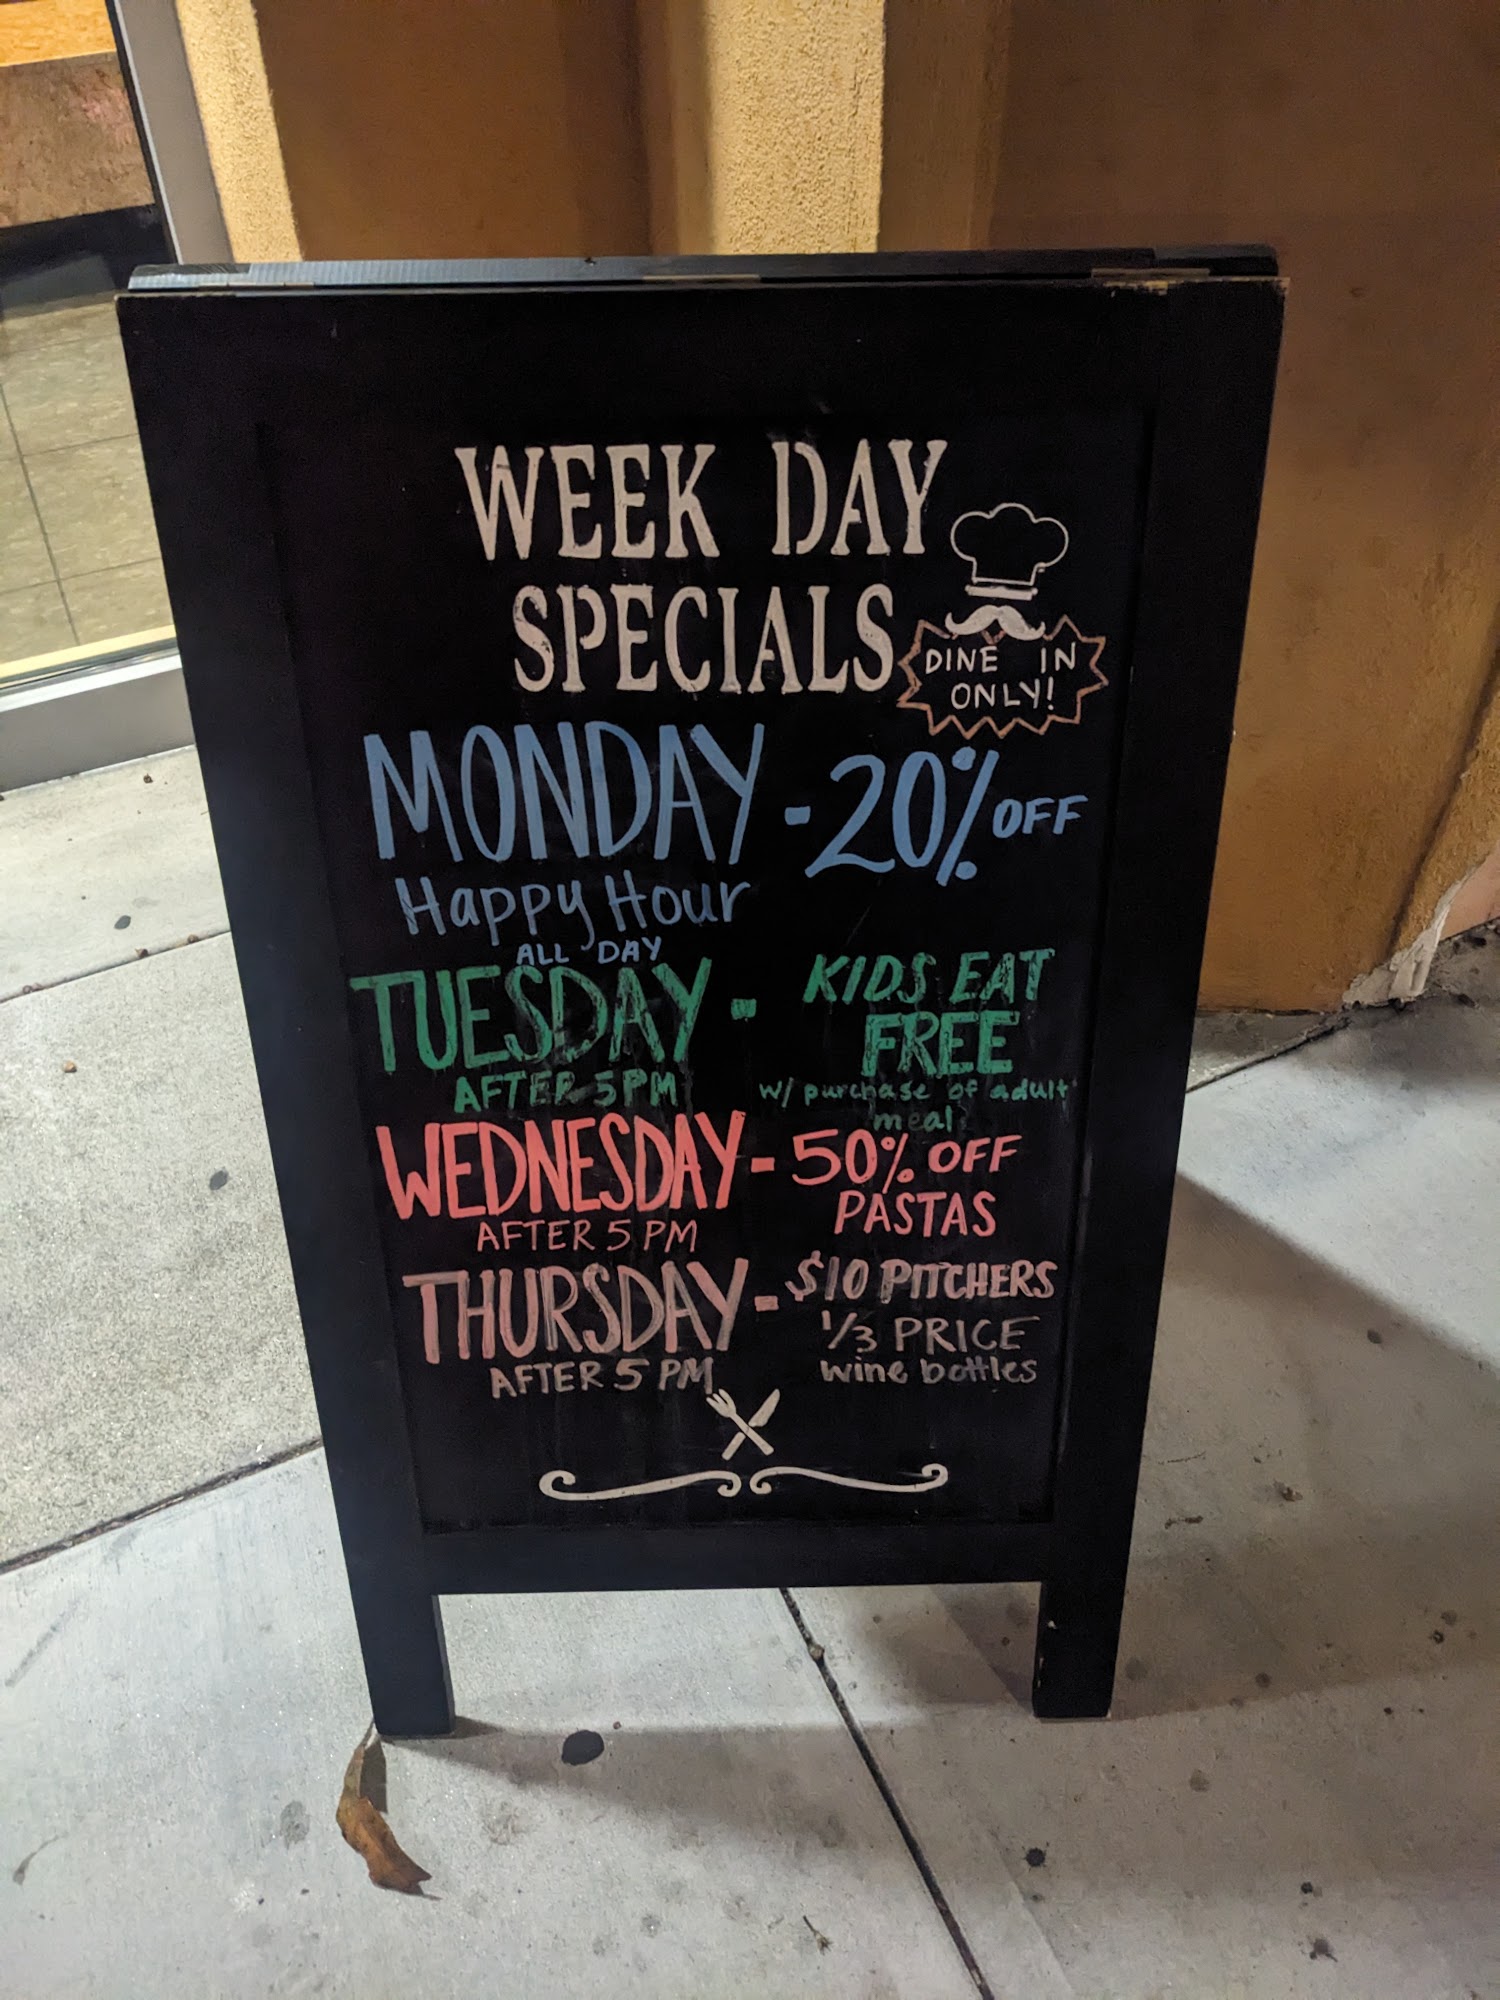 WEEK DAY
SPECIALS
DINE IN
ONLY!
MONDAY - 20% OFF
Happy Hour
ALL DAY
TUESDAY - KIDS EAT
FREE
AFTER 5PM w/ purchase of adult
meal
WEDNESDAY - 50% OFF
PASTAS
AFTER 5 PM
THURSDAY - $10 PITCHERS
1/3 PRICE
AFTER 5 PM wine bottles